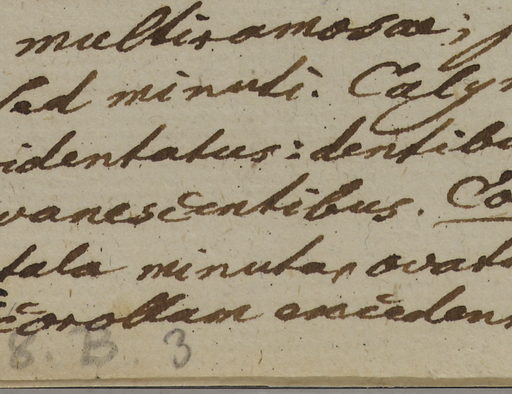 multiramosae; p
sed minuti. Calyx
identatus: dentibu
vanescentibus. Co
tala minuta, ovata
corollam excedens
8. B. 3